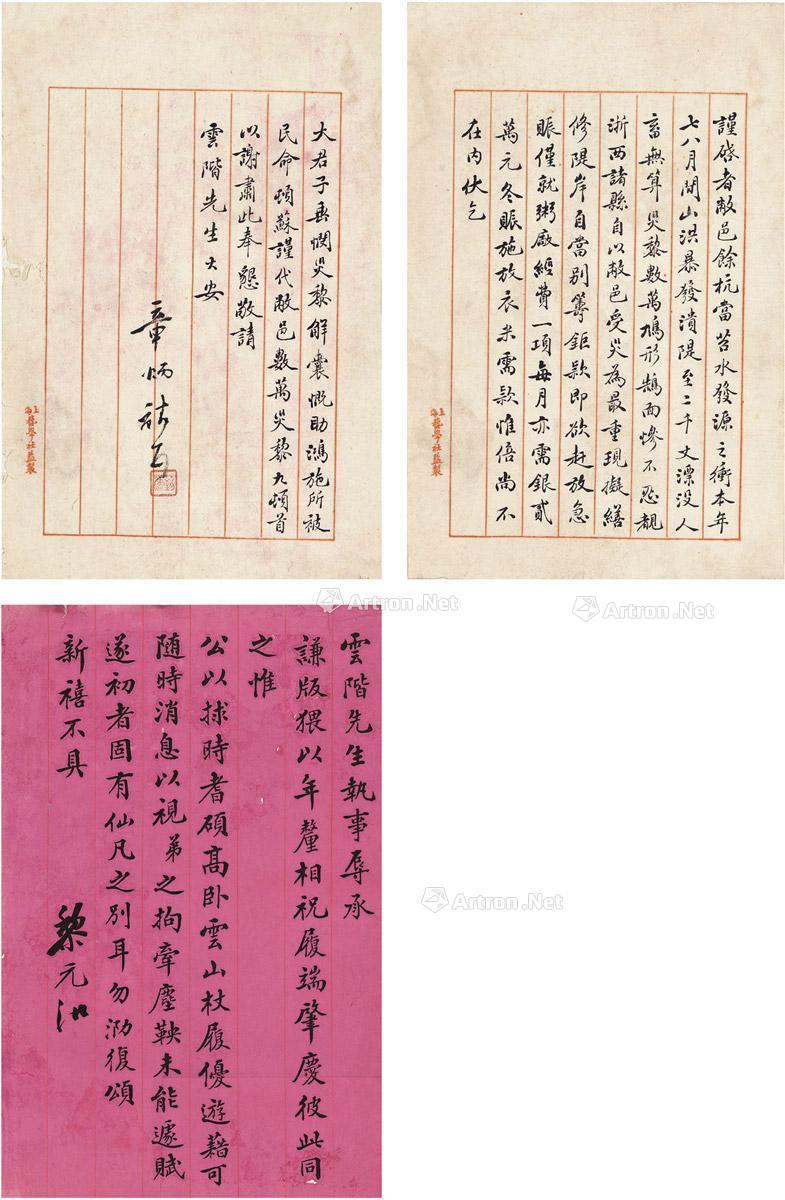 謹啓者敝邑餘杭當苕水發源之衝本年
七八月間山洪暴發潰隄至二千丈漂没人
畜無算災黎數萬鳩形鵠面慘不忍覩
浙西諸縣自以敝邑受災為最重現擬繕
修隄岸自當別籌鉅款即欲赶放急
賑僅就粥廠經費一項每月亦需銀貳
萬元冬賑施放衣米需款惟倍尚不
在内伏乞
大君子垂憫災黎解囊慨助鴻施所被
民命頓蘇謹代敝邑數萬災黎九頓首
以謝肅此奉懇敬請
雲階先生大安
章炳
上海
藝學社監製
上海
藝學社監製
雲階先生執事辱承
謙版猥以年釐相祝履端肇慶彼此同
之惟
公以捄時耆碩高卧雲山杖履優遊藉可
随時消息以視弟之拘牽塵鞅未能遽賦
遂初者固有仙凡之別耳勿泐復頌
新禧不具
黎元洪
Artron.Net
Artron.Net
Artron.Net